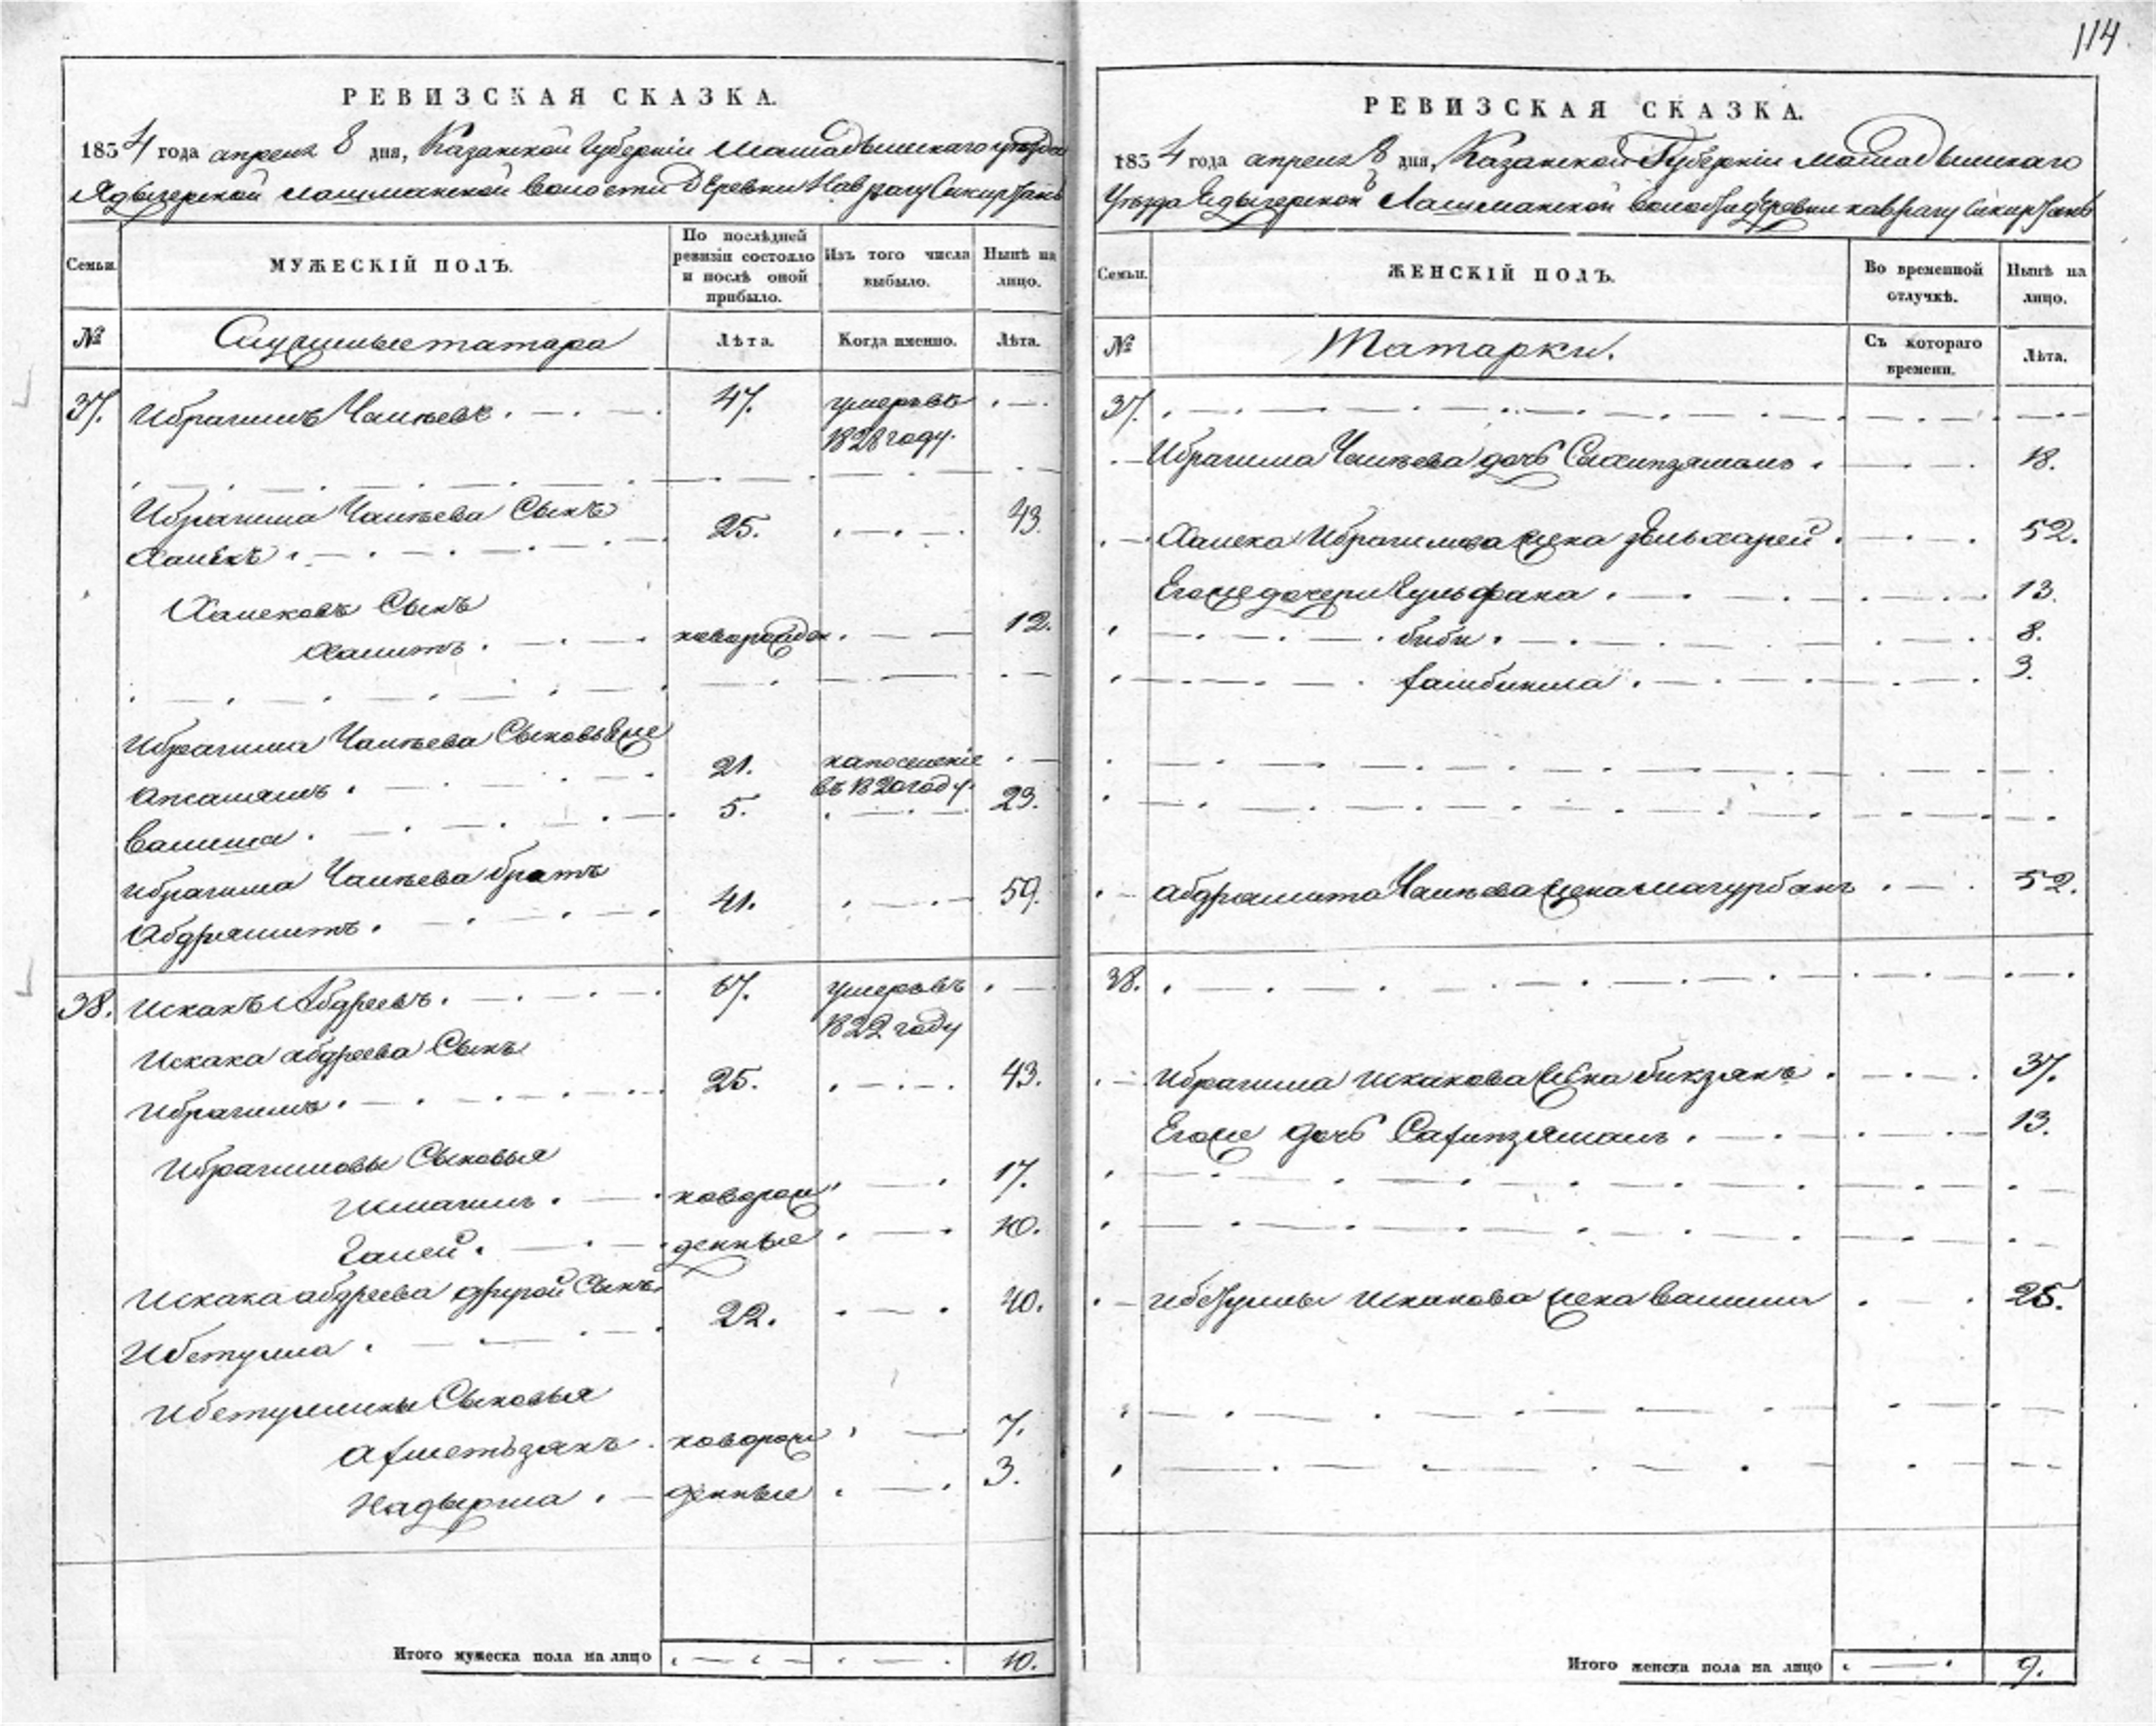 114
РЕВИЗСКАЯ СКАЗКА.
1834 года апреля 8 дня, Казанской Губерніи Мамадышскаго уѣзда
Ядыгерской лашманской волости Деревни Сикиртанъ
Семьи.
МУЖЕСКІЙ ПОЛЪ.
По послѣдней ревизіи состояло и послѣ оной прибыло.
Изъ того числа выбыло.
Нынѣ на лицо.
№
Служилые татара
Лѣта.
Когда именно.
Лѣта.
37. Ибрагимъ 47. умеръ въ
1828 году.
Ибрагима Сынъ 25. 43
Ханекъ
Ханековъ Сынъ
Хамитъ новорожден 12.
Ибрагима Сыновья же
21. на поселеніе
въ 1820 году.
Валиша 5. 23.
Ибрагима братъ
Абдряшитъ 41. 59.
38. Искакъ Абдреевъ 67. умеръ въ
1822 году
Искака абдреева Сынъ
Ибрагимъ 25. 43.
Ибрагимовы Сыновья
Исмагилъ новорож 17.
Галей денные 10.
Искака абдреева другой Сынъ
Ибетулла 22. 40.
Ибетуллины Сыновья
Ахметьзянъ новорож 7.
Надырша денные 3.
Итого мужеска пола на лицо 10.
РЕВИЗСКАЯ СКАЗКА.
1834 года апреля 8 дня, Казанской Губерніи Мамадышскаго
Уѣзда Ядыгерской Лашманской волости деревни Сикиртанъ
Семьи.
ЖЕНСКІЙ ПОЛЪ.
Во временной отлучкѣ.
Нынѣ на лицо.
№
Татарки.
Съ котораго времени.
Лѣта.
37.
Ибрагима дочь 18.
Ханека Ибрагимова жена 52.
Его же дочери Гульфана 13.
биби 8.
3.
Абдряшита жена 52.
38.
Ибрагима Искакова жена бикзянъ 37.
Его же дочь 13.
Ибетуллы Искакова жена 25.
Итого женска пола на лицо 9.